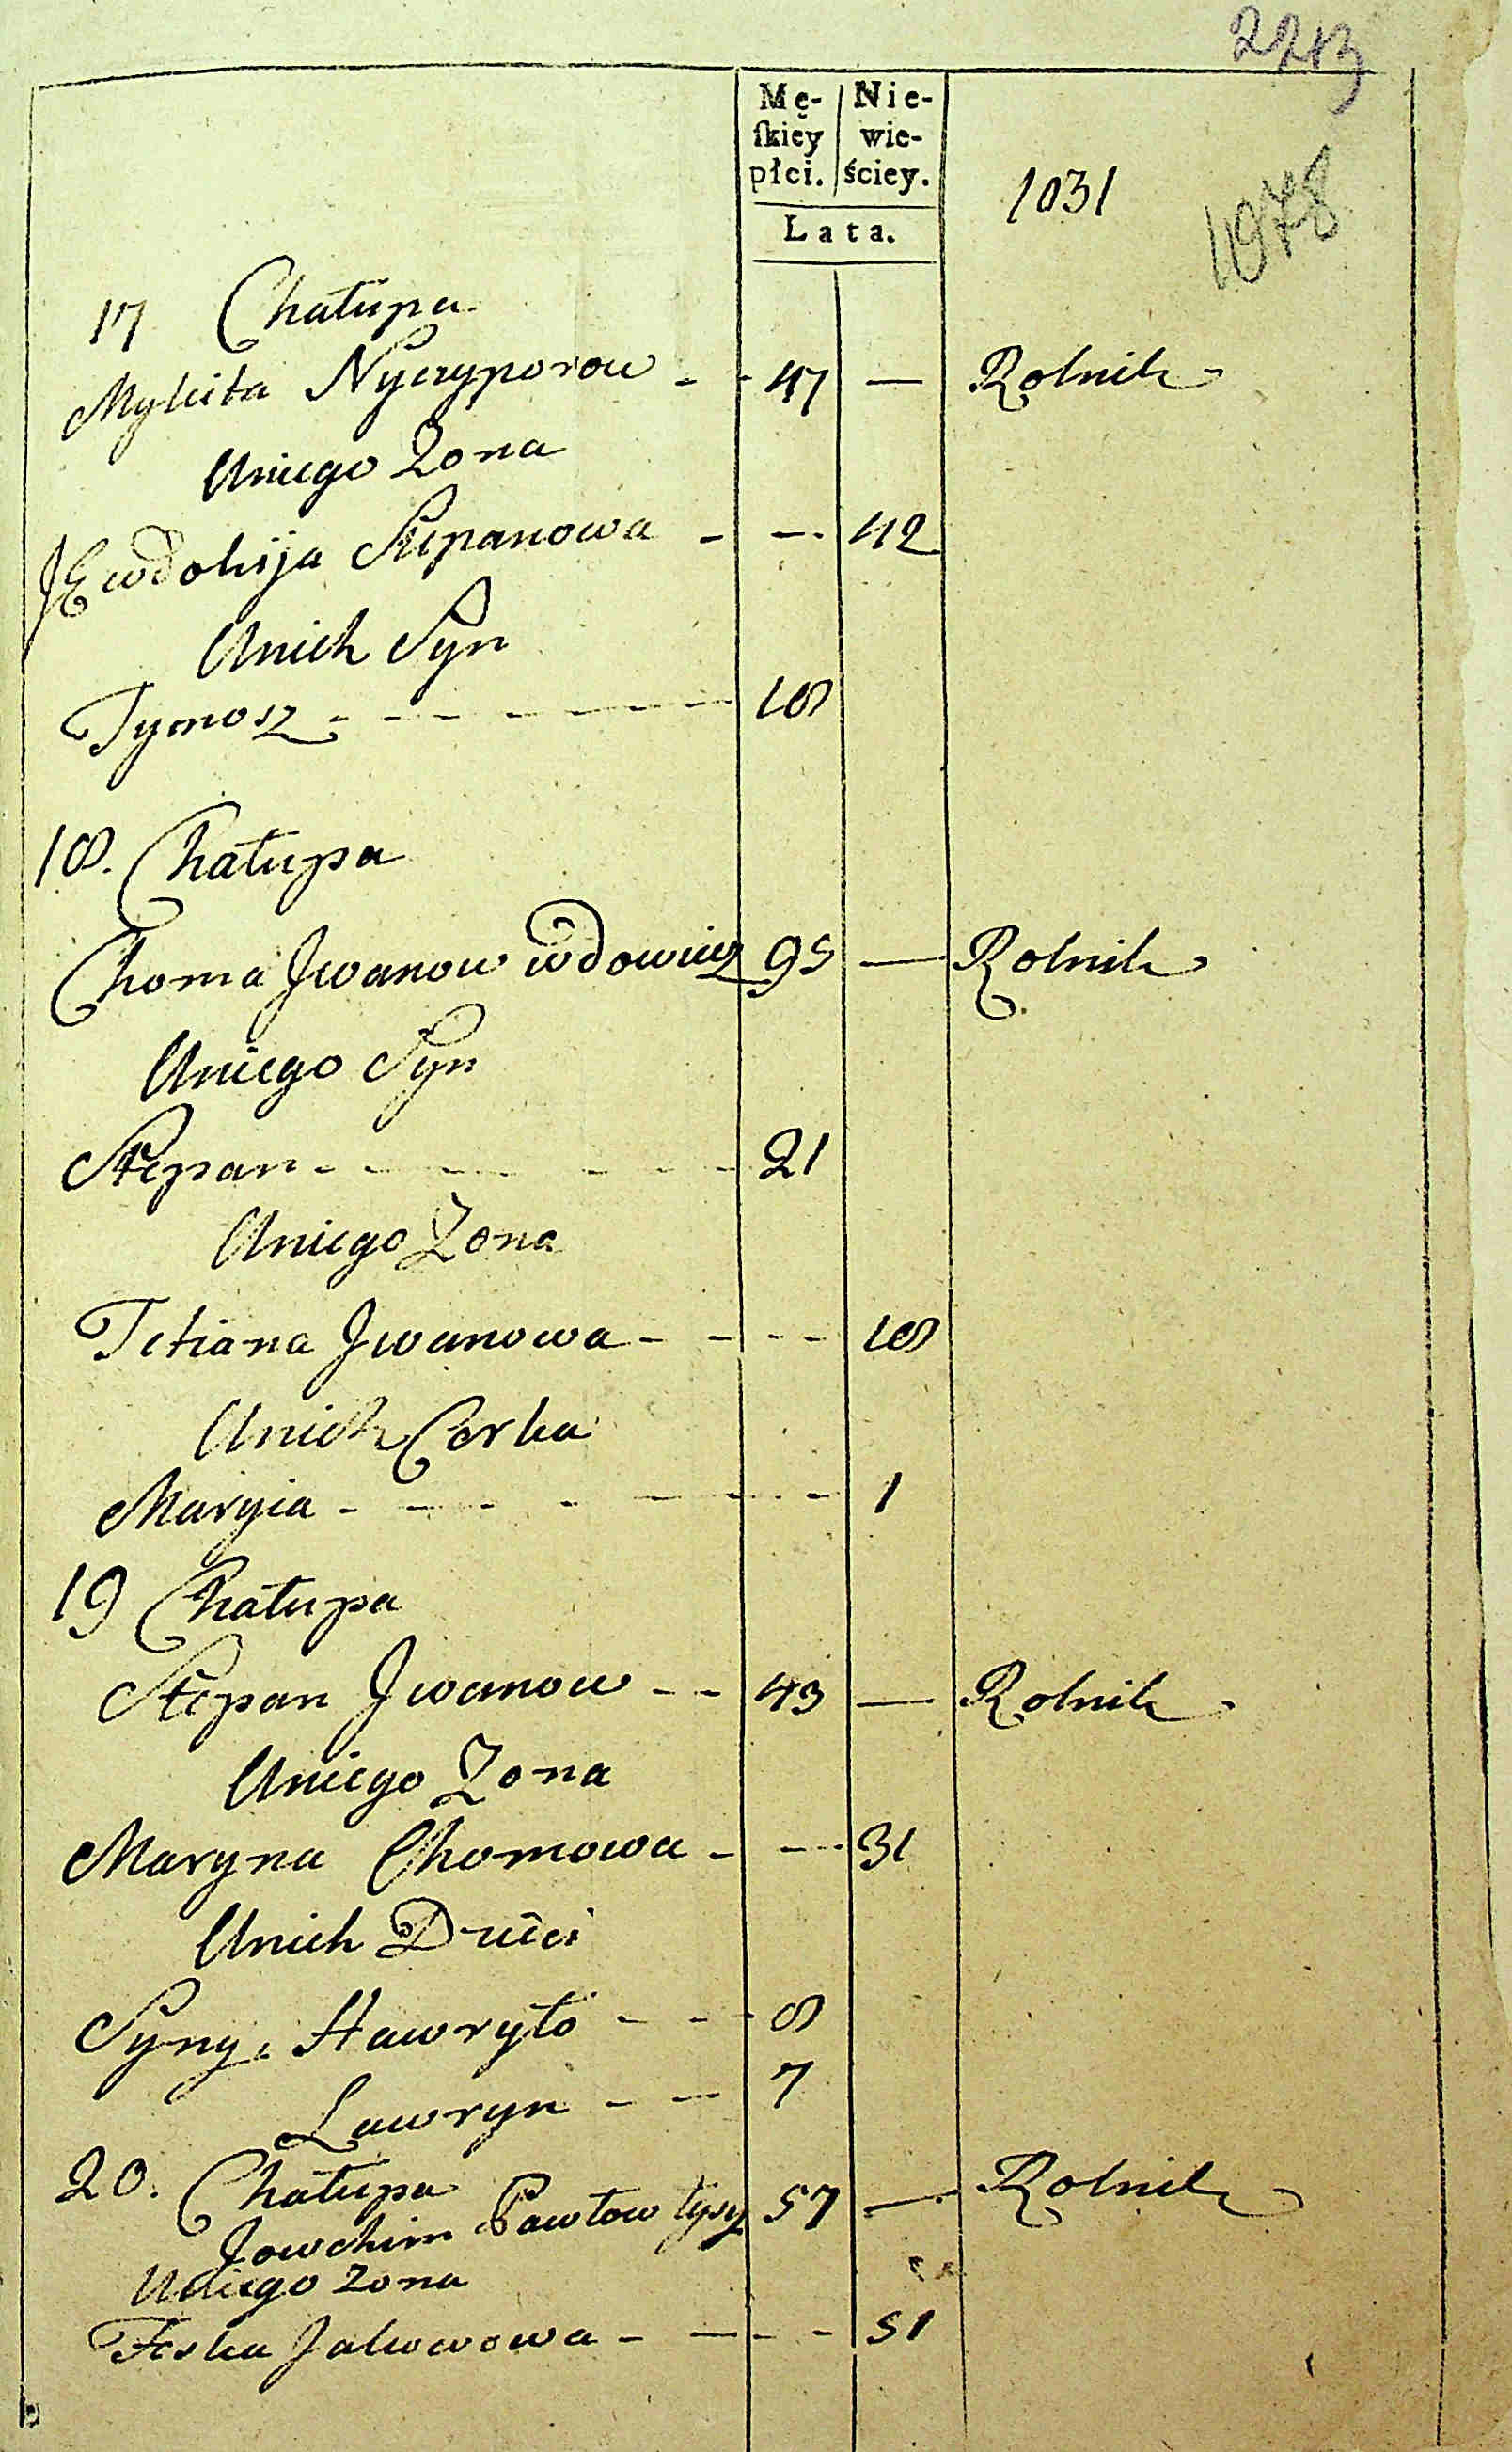 2213
Mę- Nie-
ſkiey wie-
płci. ściey.
1031
1078
Lata.
17 Chałupa
Mykita Nyczyporow - - 47 — Rolnik
Uniego Zona
JEwdokija Stepanowa - - - 42
Unich Syn
Tymosz - - - - - - 18
18. Chałupa
Choma Jwanow wdowiec 95 — Rolnik
Uniego Syn
Stepan - - - - - - 21
Uniego Zona
Tetiana Jwanowa - - - - 18
Unich Corka
Maryia - - - - - - - 1
19 Chałupa
Stepan Jwanow - - 43 — Rolnik
Uniego Zona
Maryna Chomowa - - - 31
Unich Dzieci
Syny. Hawryło - - - 8
Ławryn - - - 7
20. Chałupa
Jowchim Pawłow łysy 57 — Rolnik
Uniego Zona
Feska Jakowowa - - - - 51